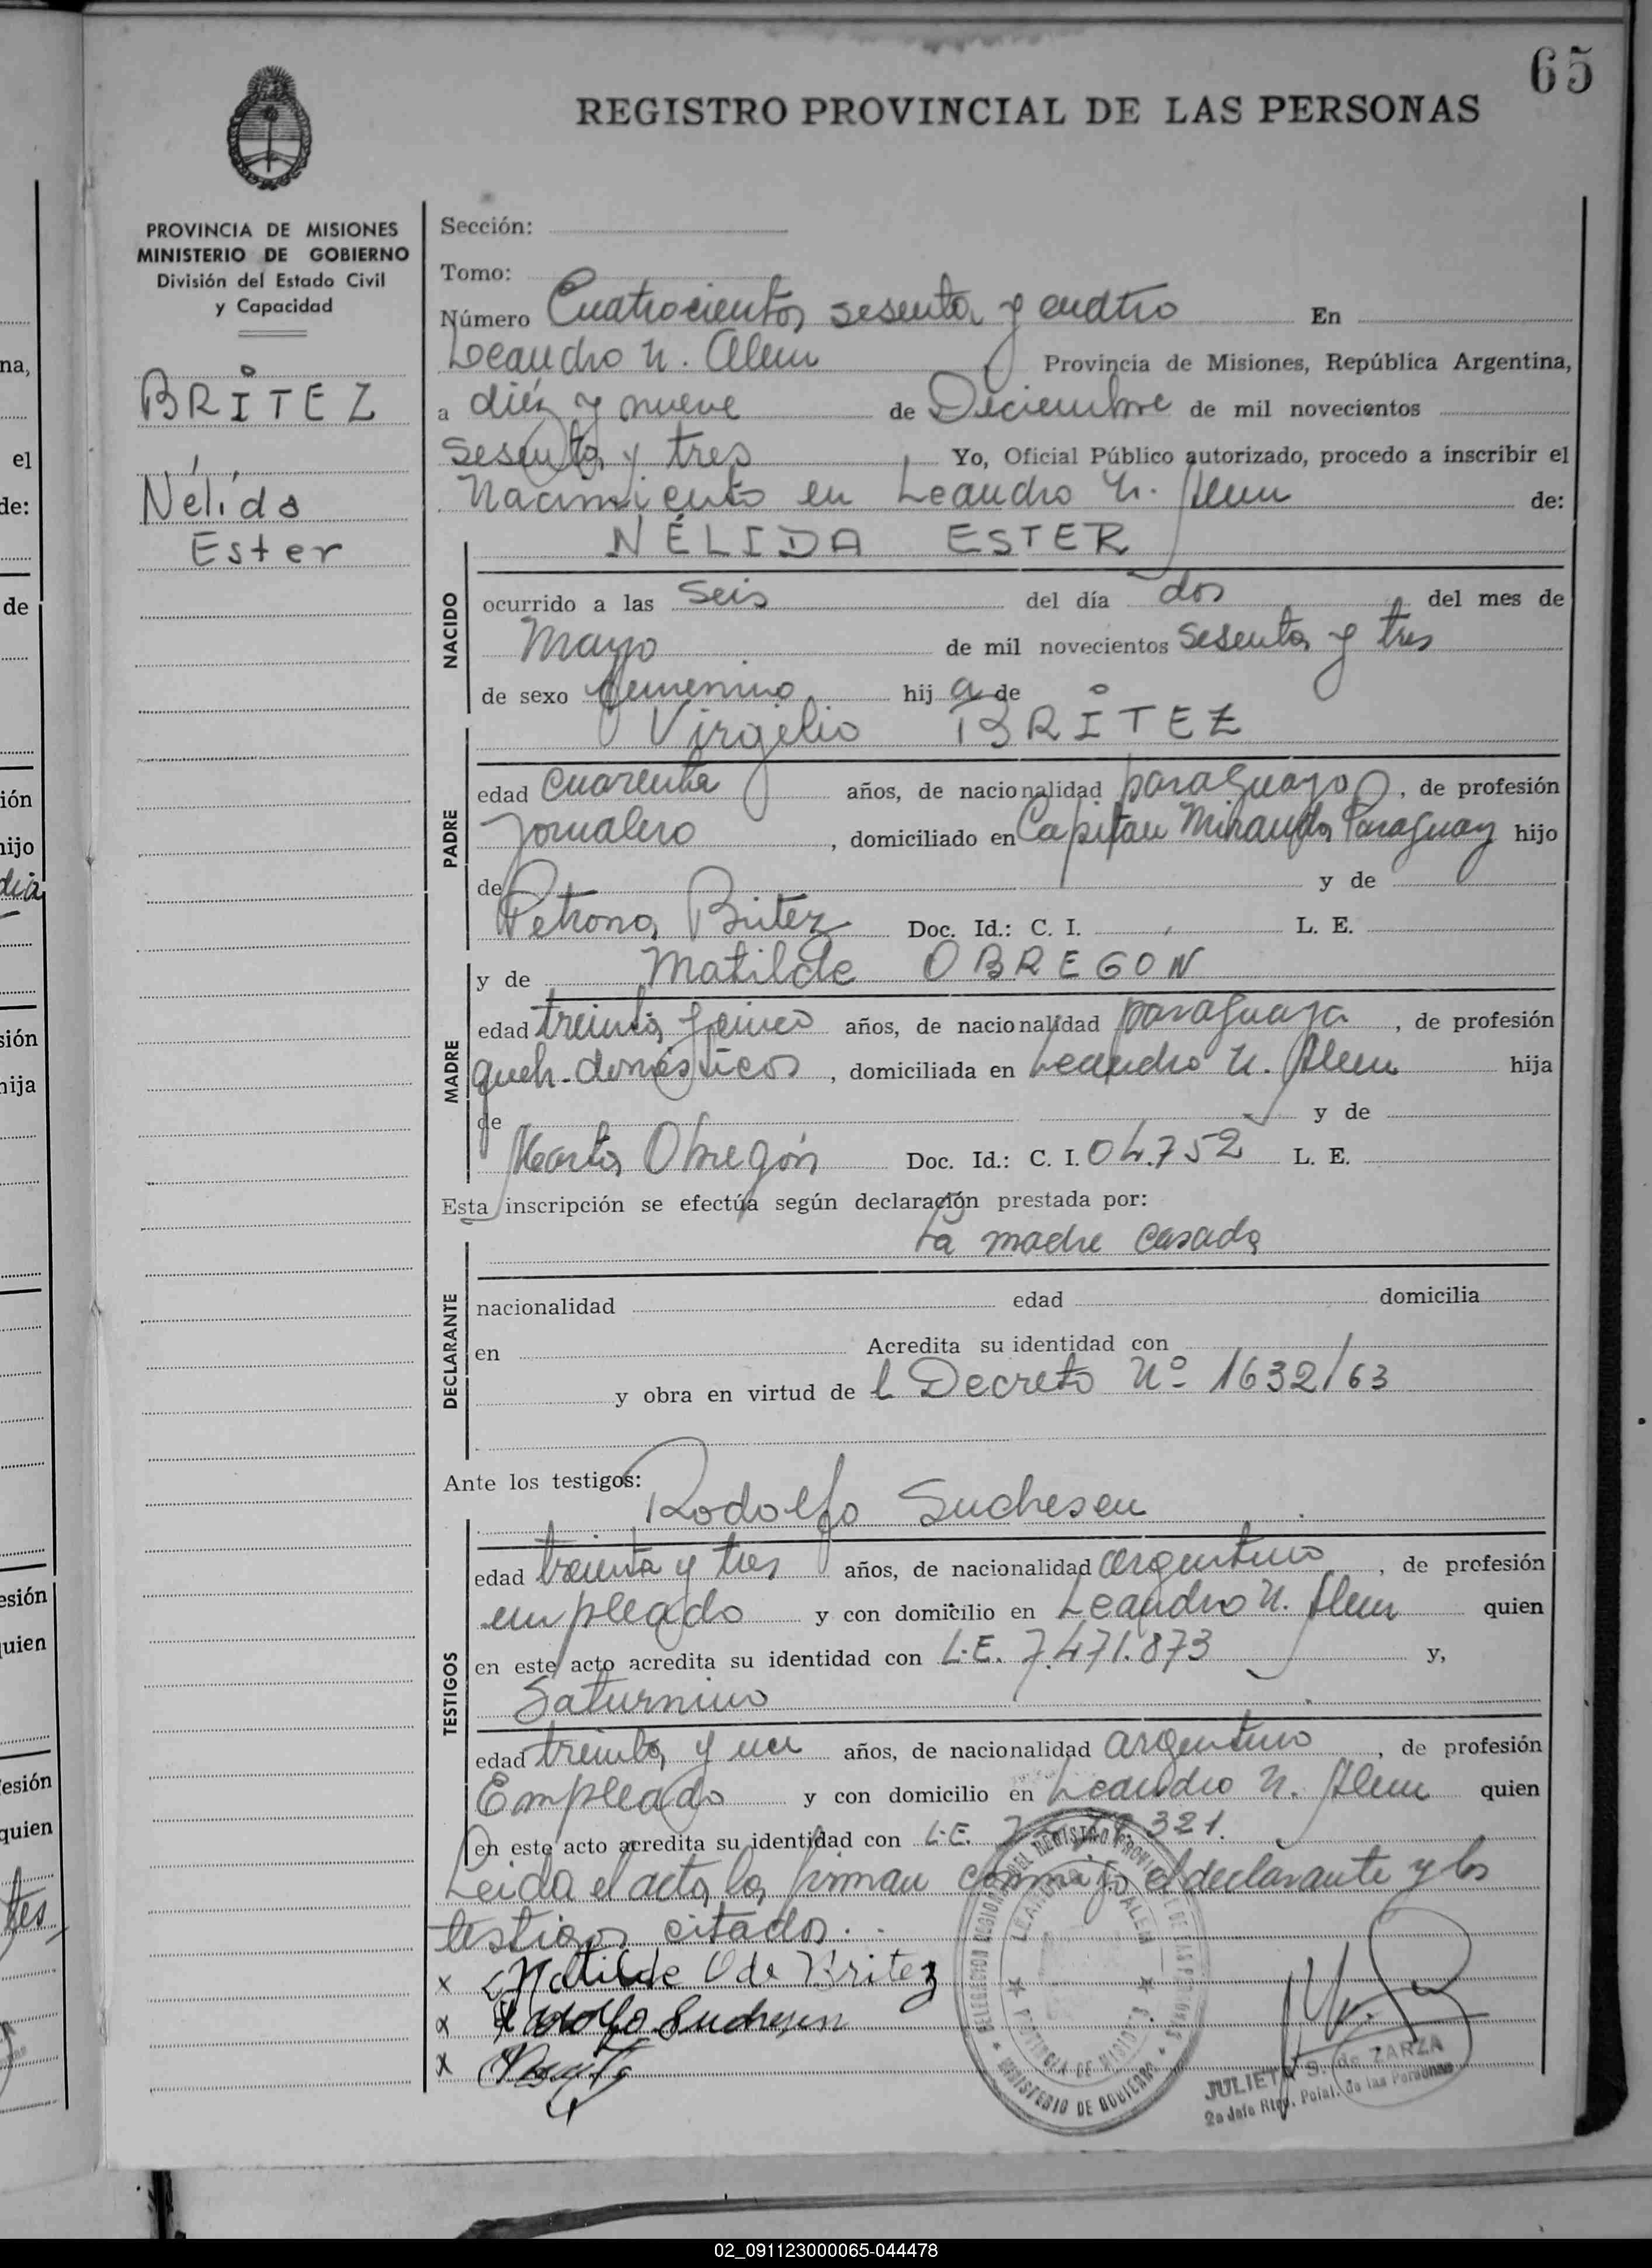 65
REGISTRO PROVINCIAL DE LAS PERSONAS
PROVINCIA DE MISIONES
MINISTERIO DE GOBIERNO
División del Estado Civil
y Capacidad
BRITEZ
Nélida
Ester
Sección:
Tomo:
Número Cuatrocientos sesenta y cuatro En
Leandro N. Alem Provincia de Misiones, República Argentina,
a diez y nueve de Diciembre de mil novecientos
sesenta y tres Yo, Oficial Público autorizado, procedo a inscribir el
Nacimiento en Leandro N. Alem de:
NÉLIDA ESTER
NACIDO
ocurrido a las seis del día dos del mes de
Mayo de mil novecientos sesenta y tres
de sexo femenino hij a de
Virgilio BRITEZ
PADRE
edad cuarenta años, de nacionalidad paraguayo, de profesión
Jornalero, domiciliado en Capitan Miranda Paraguay hijo
de y de
Petrona Britez Doc. Id.: C. I. L. E.
y de Matilde OBREGON
MADRE
edad treinta y cinco años, de nacionalidad paraguaya, de profesión
queh. domésticos, domiciliada en Leandro N. Alem hija
de y de
Marta Obregón Doc. Id.: C. I. 04.752 L. E.
Esta inscripción se efectúa según declaración prestada por:
La madre casada
DECLARANTE
nacionalidad edad domicilia
en Acredita su identidad con
y obra en virtud de l Decreto Nº 1632/63
Ante los testigos:
Rodolfo Suchesen
TESTIGOS
edad treinta y tres años, de nacionalidad argentino, de profesión
empleado y con domicilio en Leandro N. Alem quien
en este acto acredita su identidad con L.E. 7.471.873 y,
Saturnino
edad treinta y un años, de nacionalidad argentino, de profesión
Empleado y con domicilio en Leandro N. Alem quien
en este acto acredita su identidad con L.E. 321.
Leida el acta la firman conmigo el declarante y los
testigos citados.
x Matilde O de Britez
x Rodolfo Suchesen
x
JULIETA S. de ZARZA
2a Jefe Reg. Pcial. de las Personas
02_091123000065-044478